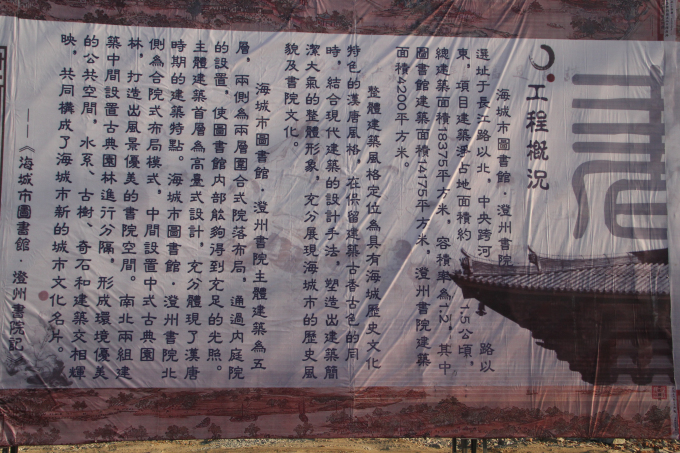 工程概況
海城市圖書館·澄州書院
選址于長江路以北，中央跨河
路以
東，項目建築淨占地面積約
公頃，
總建築面積18375平方米，容積率為1.2，其中
圖書館建築面積14175平方米，澄州書院建築
面積4200平方米。
整體建築風格定位為具有海城歷史文化
特色的漢唐風格，在保留建築古香古色的同
時，結合現代建築的設計手法，塑造出建築簡
潔大氣的整體形象，充分展現海城市的歷史風
貌及書院文化。
海城市圖書館·澄州書院主體建築為五
層，兩側為兩層圍合式院落布局，通過內庭院
的設置，使圖書館內部能夠得到充足的光照。
主體建築首層為高臺式設計，充分體現了漢唐
時期的建築特點。海城市圖書館·澄州書院北
側為合院式布局模式，中間設置中式古典園
林，打造出風景優美的書院空間。南北兩組建
築中間設置古典園林進行分隔，形成環境優美
的公共空間，水系、古樹、奇石和建築交相輝
映，共同構成了海城市新的城市文化名片。
——《海城市圖書館·澄州書院記